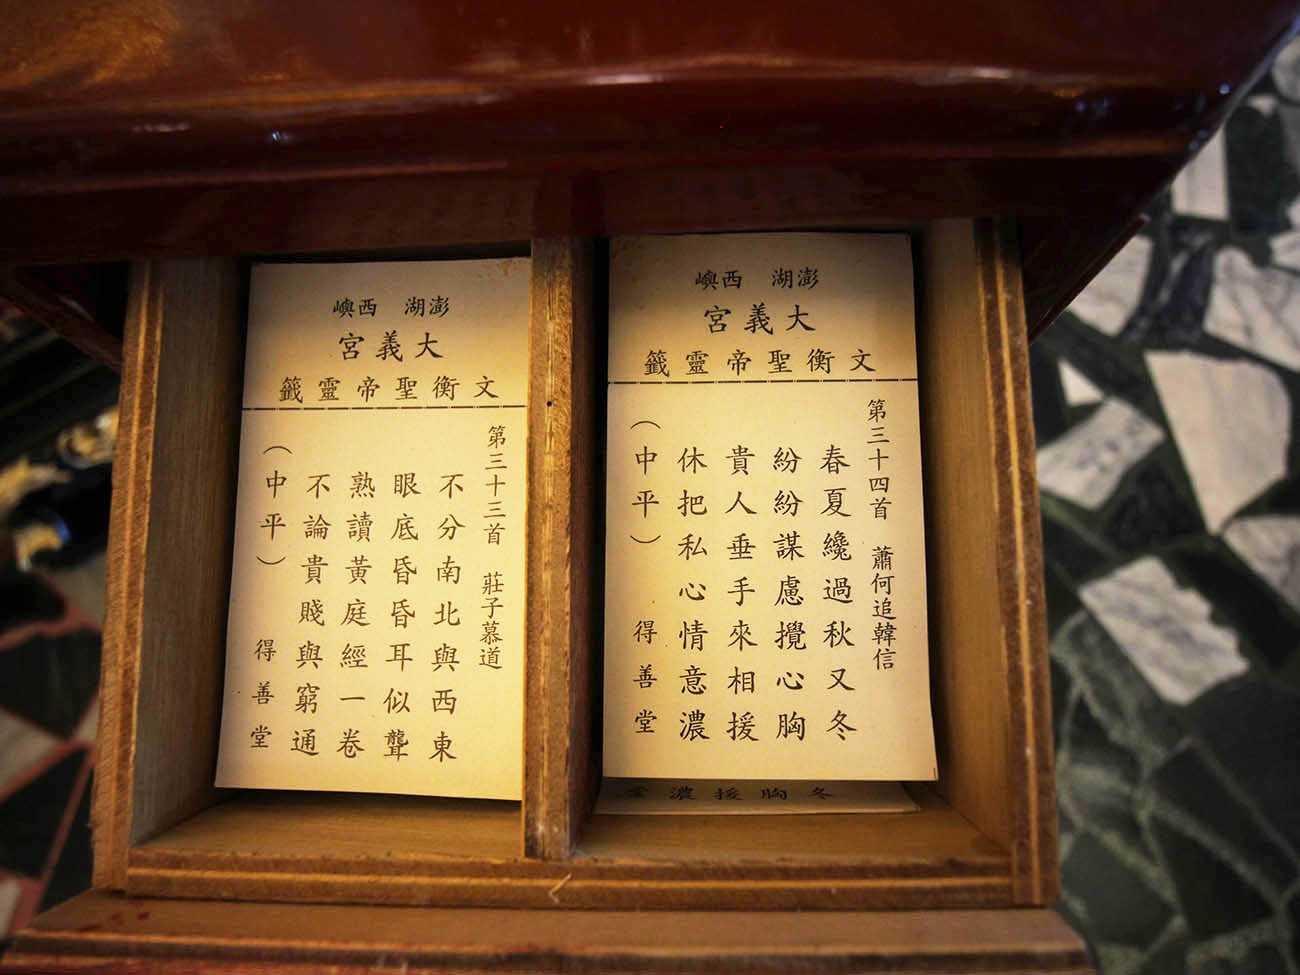 澎湖 西嶼
大義宮
文衡聖帝靈籤
第三十三首 莊子慕道
不分南北與西東
眼底昏昏耳似聾
熟讀黃庭經一卷
不論貴賤與窮通
（中平） 得善堂
澎湖 西嶼
大義宮
文衡聖帝靈籤
第三十四首 蕭何追韓信
春夏纔過秋又冬
紛紛謀慮攪心胸
貴人垂手來相援
休把私心情意濃
（中平） 得善堂
冬
胸
援
濃
堂